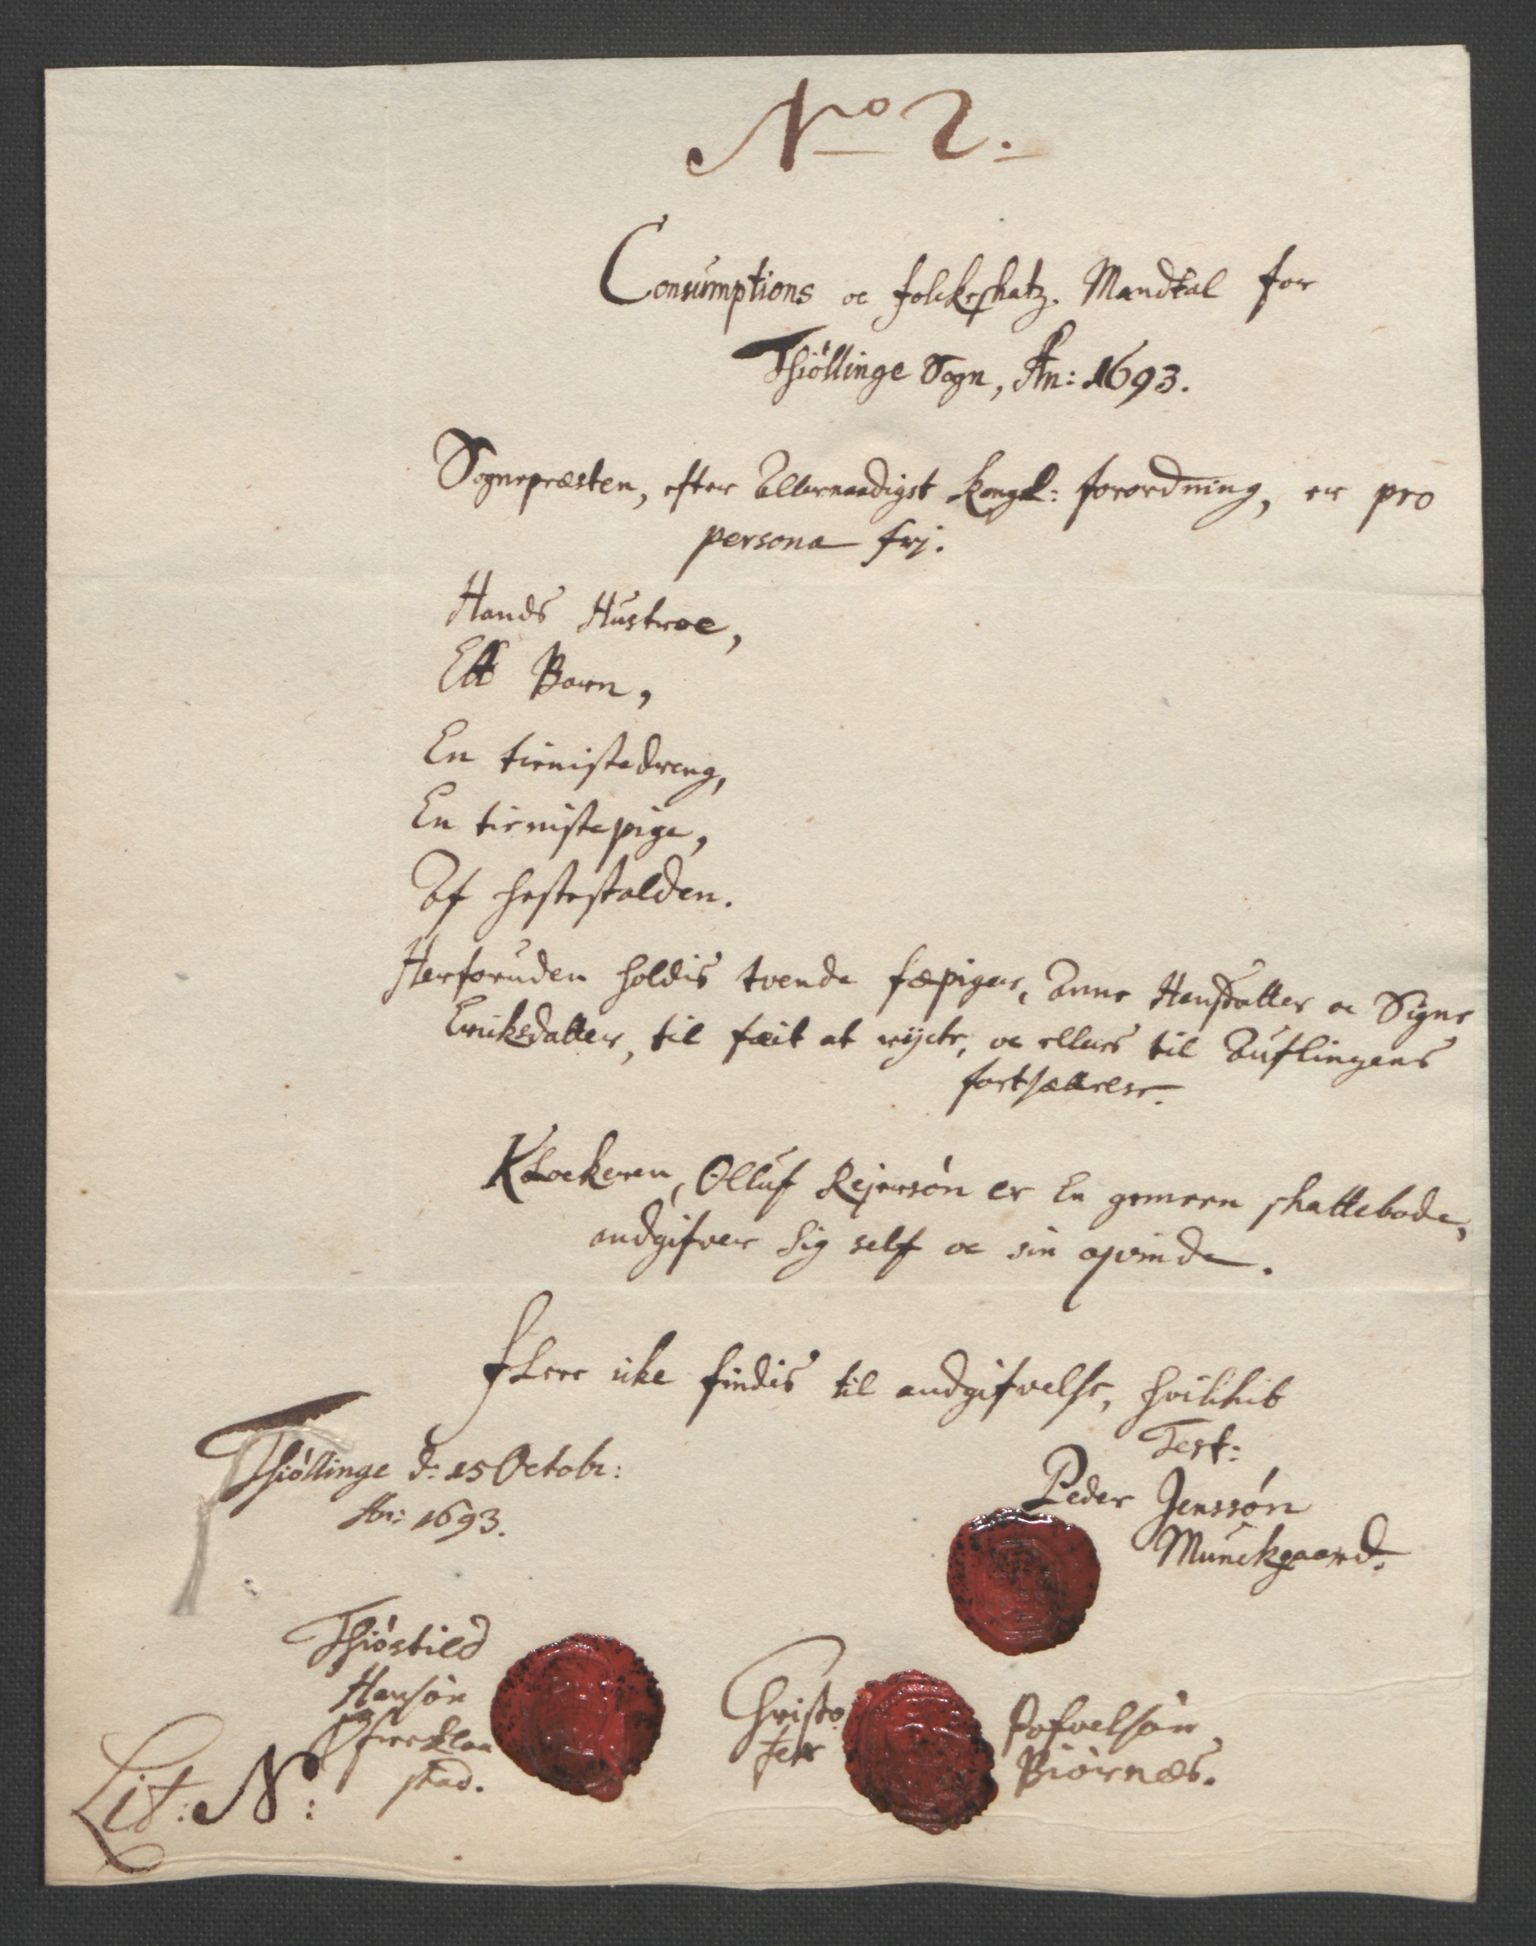 No 2.
Consumptions oc folckeskatz. Mandtal for
Thiöllinge Sogn, An: 1693.
Sognepræsten, efter Allernaadigst Kongel: forordning, er pro
persona frj.
Hands Hustroe,
Ett Barn,
En tienistedreng,
En tienistepige,
Af hestestalden.
Herforuden holdis tvende fæpiger, Anne Hansdatter oc Signe
Eriksdatter, til fæit at røcte, oc ellers til Auflingens
fortsættelse.
Klockeren, Olluf Rejersøn er En gemeen skattebode,
andgifver sig self oc sin qvinde.
Flere icke findis til andgifvelse, hvilkit
Test:
Peder Jenssön
Munckgaard.
Thiöllinge d: 15 Octobr:
An: 1693.
Thiöstild
Hansön
stad.
Christo
fer
Pofvelsön
Biörnæs.
Lit: N: